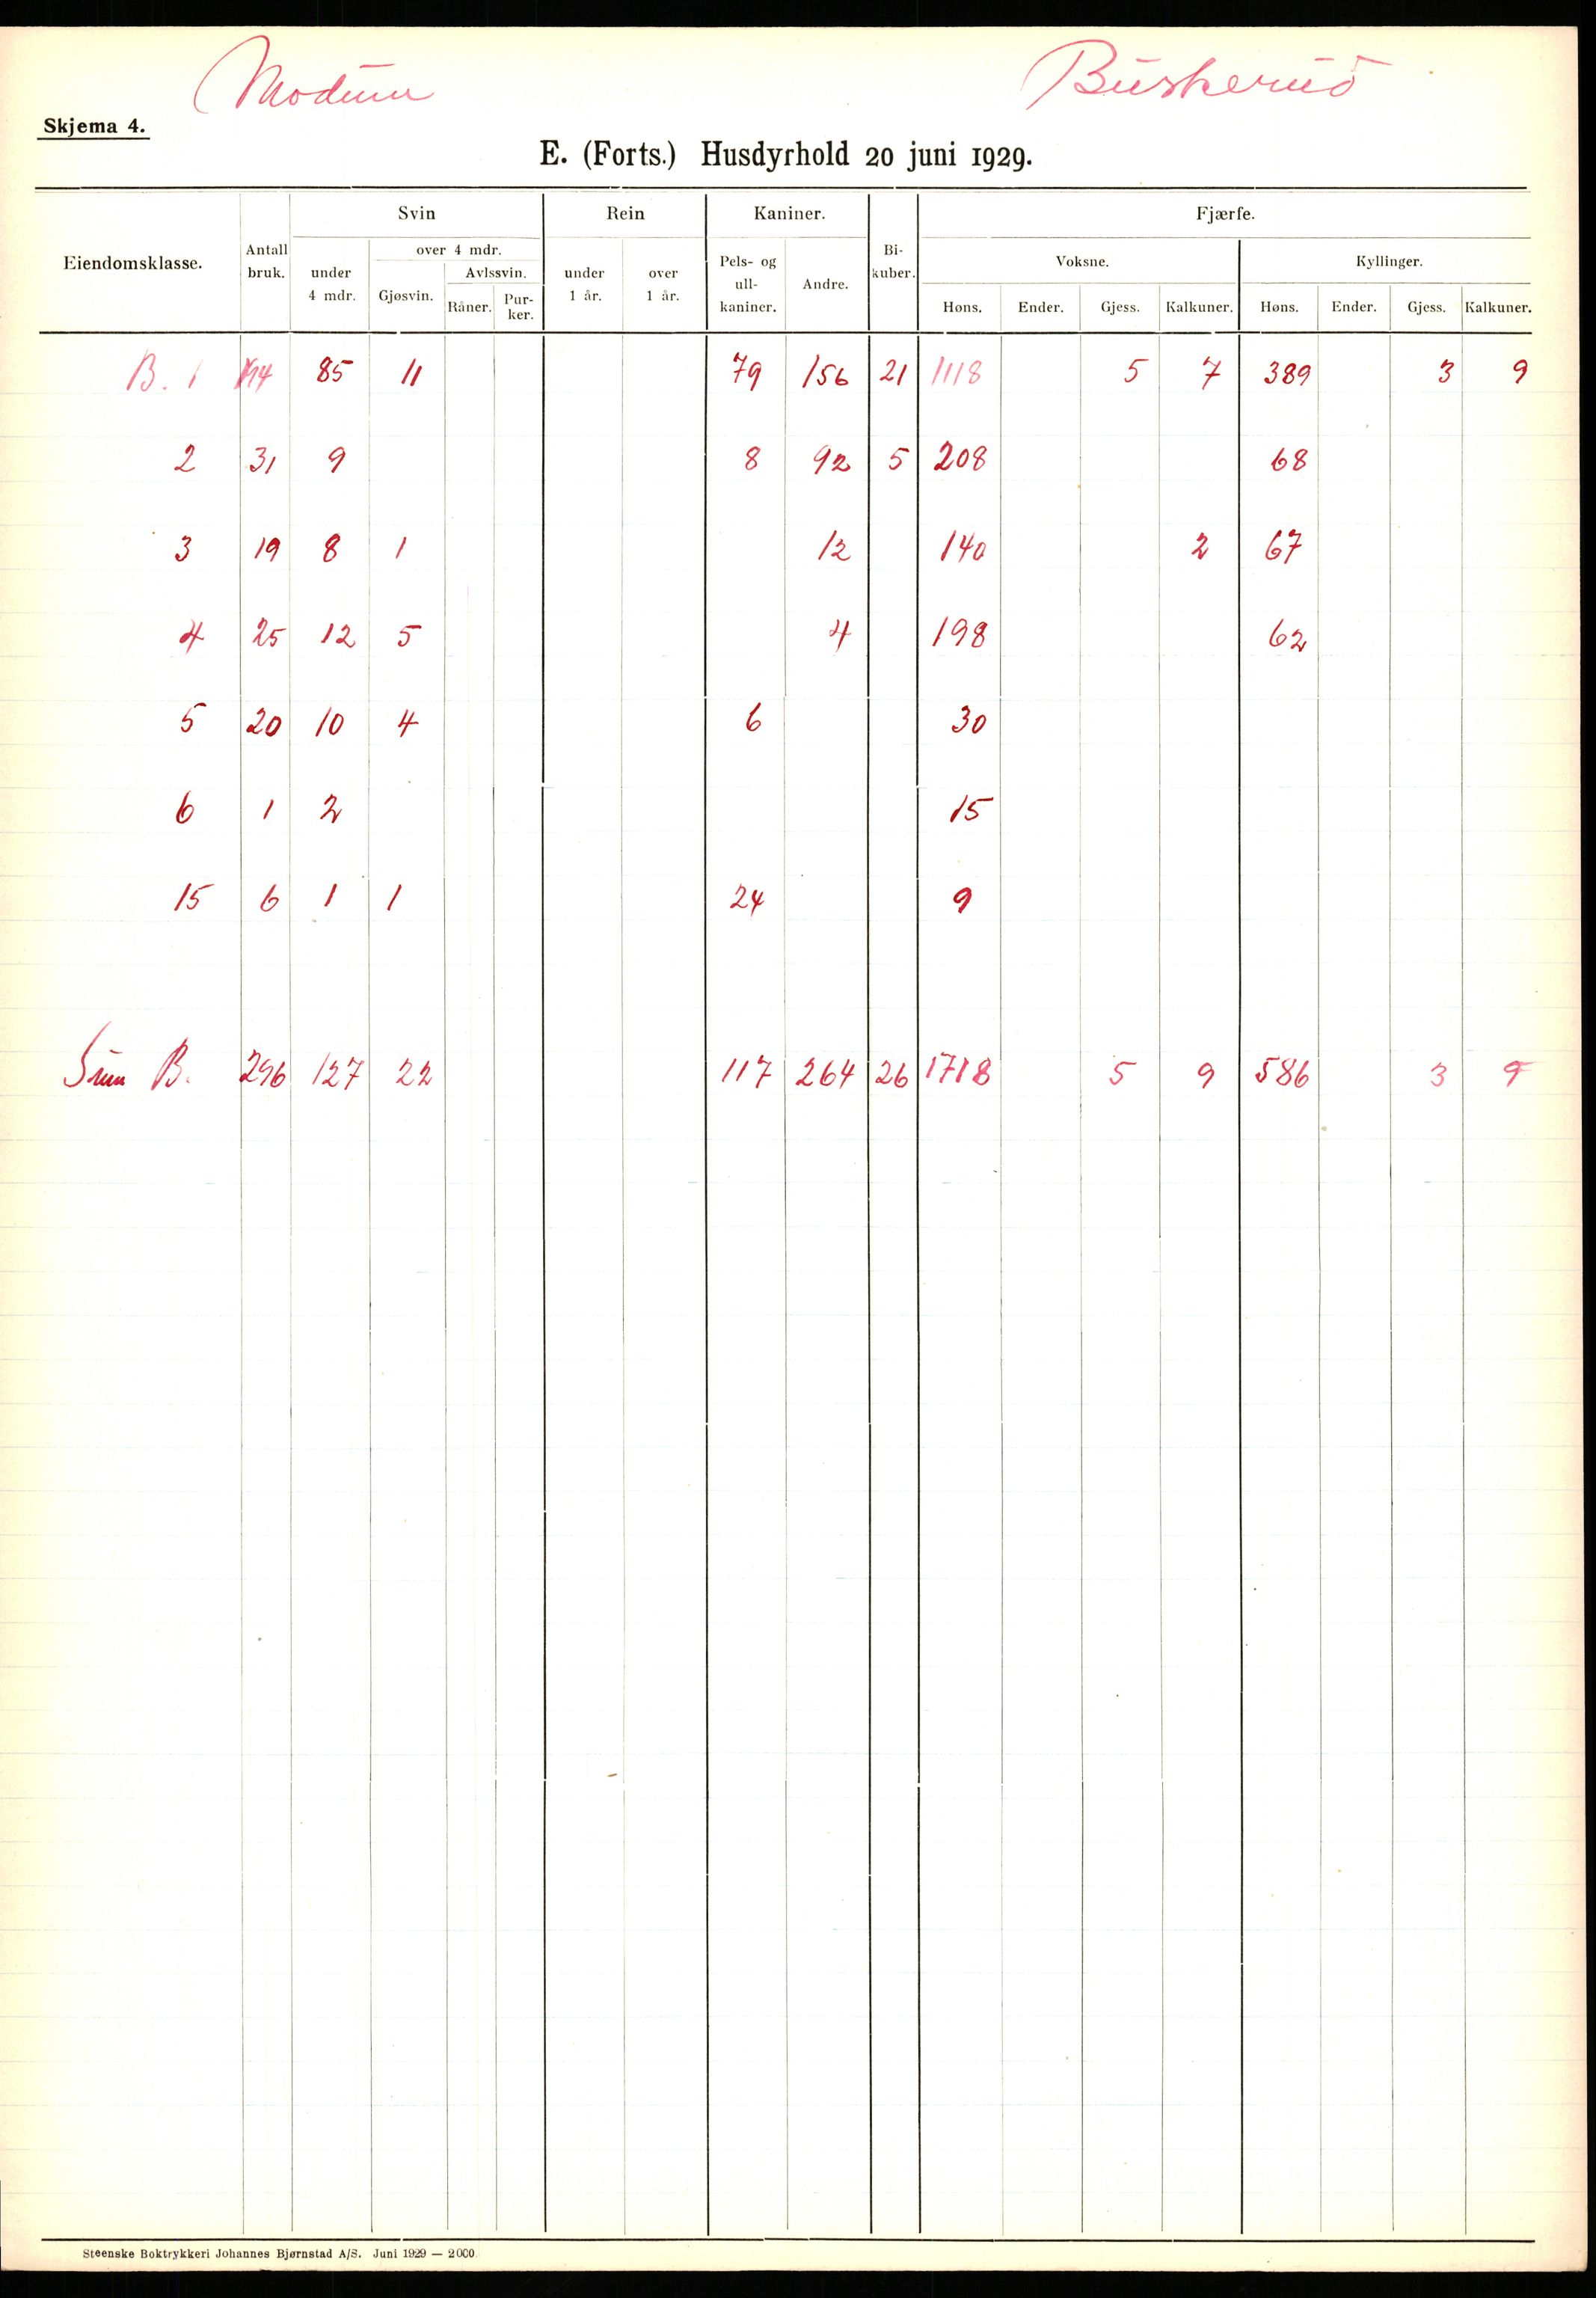 Modum Buskerud
Skjema 4.
E. (Forts.) Husdyrhold 20 juni 1929.
Eiendomsklasse. Antall bruk. Svin Rein Kaniner. Bi-kuber. Fjærfe.
under 4 mdr. over 4 mdr. under 1 år. over 1 år. Pels- og ull-kaniner. Andre. Voksne. Kyllinger.
Gjøsvin. Avlssvin.
Råner. Pur-ker. Høns. Ender. Gjess. Kalkuner. Høns. Ender. Gjess. Kalkuner.
B. 1 194 85 11 79 156 21 1118 5 7 389 3 9
2 31 9 8 92 5 208 68
3 19 8 1 12 140 2 67
4 25 12 5 4 198 62
5 20 10 4 6 30
6 1 2 15
15 6 1 1 24 9
Sum B. 296 127 22 117 264 26 1718 5 9 586 3 9
Steenske Boktrykkeri Johannes Bjørnstad A/S. Juni 1929 — 2000.